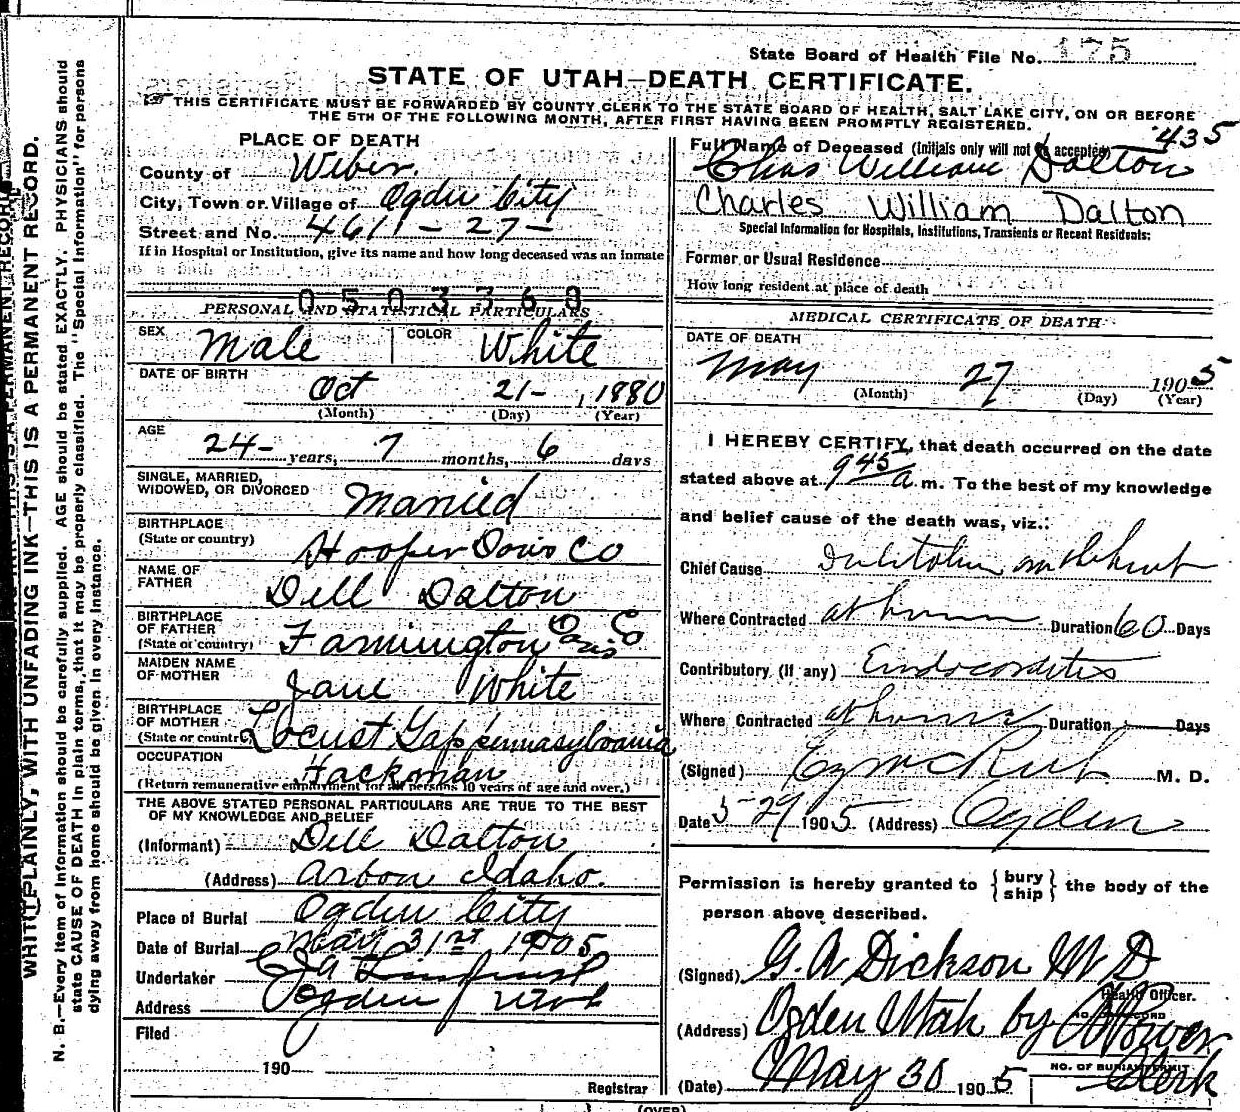 State Board of Health File No. 175
STATE OF UTAH—DEATH CERTIFICATE.
THIS CERTIFICATE MUST BE FORWARDED BY COUNTY CLERK TO THE STATE BOARD OF HEALTH, SALT LAKE CITY, ON OR BEFORE
THE 5TH OF THE FOLLOWING MONTH, AFTER FIRST HAVING BEEN PROMPTLY REGISTERED.
WRITE PLAINLY, WITH UNFADING INK—THIS IS A PERMANENT RECORD.
N. B.—Every item of information should be carefully supplied. AGE should be stated EXACTLY. PHYSICIANS should
state CAUSE OF DEATH in plain terms, that it may be properly classified. The "Special Information" for persons
dying away from home should be given in every instance.
PLACE OF DEATH
County of Weber.
City, Town or Village of Ogden City
Street and No. 4611 - 27 -
If in Hospital or Institution, give its name and how long deceased was an inmate
0503368
PERSONAL AND STATISTICAL PARTICULARS
SEX Male COLOR White
DATE OF BIRTH
Oct 21-, 1880
(Month) (Day) (Year)
AGE
24- years, 7 months, 6 days
SINGLE, MARRIED,
WIDOWED, OR DIVORCED Married
BIRTHPLACE
(State or country) Hooper Davis Co
NAME OF
FATHER Dell Dalton
BIRTHPLACE
OF FATHER
(State or country) Farmington Davis Co
MAIDEN NAME
OF MOTHER Jane White
BIRTHPLACE
OF MOTHER
(State or country) Locust Gap pennasylvania
OCCUPATION Hackman
(Return remunerative employment for all persons 10 years of age and over.)
THE ABOVE STATED PERSONAL PARTICULARS ARE TRUE TO THE BEST
OF MY KNOWLEDGE AND BELIEF
(Informant) Dell Dalton
(Address) Arbon Idaho.
Place of Burial Ogden City
Date of Burial May 31st, 1905
Undertaker
Address Ogden Utah
Filed
190
Registrar
435
Full Name of Deceased (Initials only will not be accepted)
Chas William Dalton
Charles William Dalton
Special Information for Hospitals, Institutions, Transients or Recent Residents:
Former or Usual Residence
How long resident at place of death
MEDICAL CERTIFICATE OF DEATH
DATE OF DEATH
May 27 1905
(Month) (Day) (Year)
I HEREBY CERTIFY, that death occurred on the date
stated above at 9 45 a. m. To the best of my knowledge
and belief cause of the death was, viz.:
Chief Cause
Where Contracted at home Duration 60 Days
Contributory (If any) Endocarditis
Where Contracted at home Duration Days
(Signed) M. D.
Date 5-29 1905. (Address) Ogden
Permission is hereby granted to { bury ship } the body of the
person above described.
(Signed) G. A Dickson M D
Health Officer.
(Address) Ogden Utah by
NO. OF BURIAL PERMIT
Clerk
(Date) May 30 1905
(OVER)